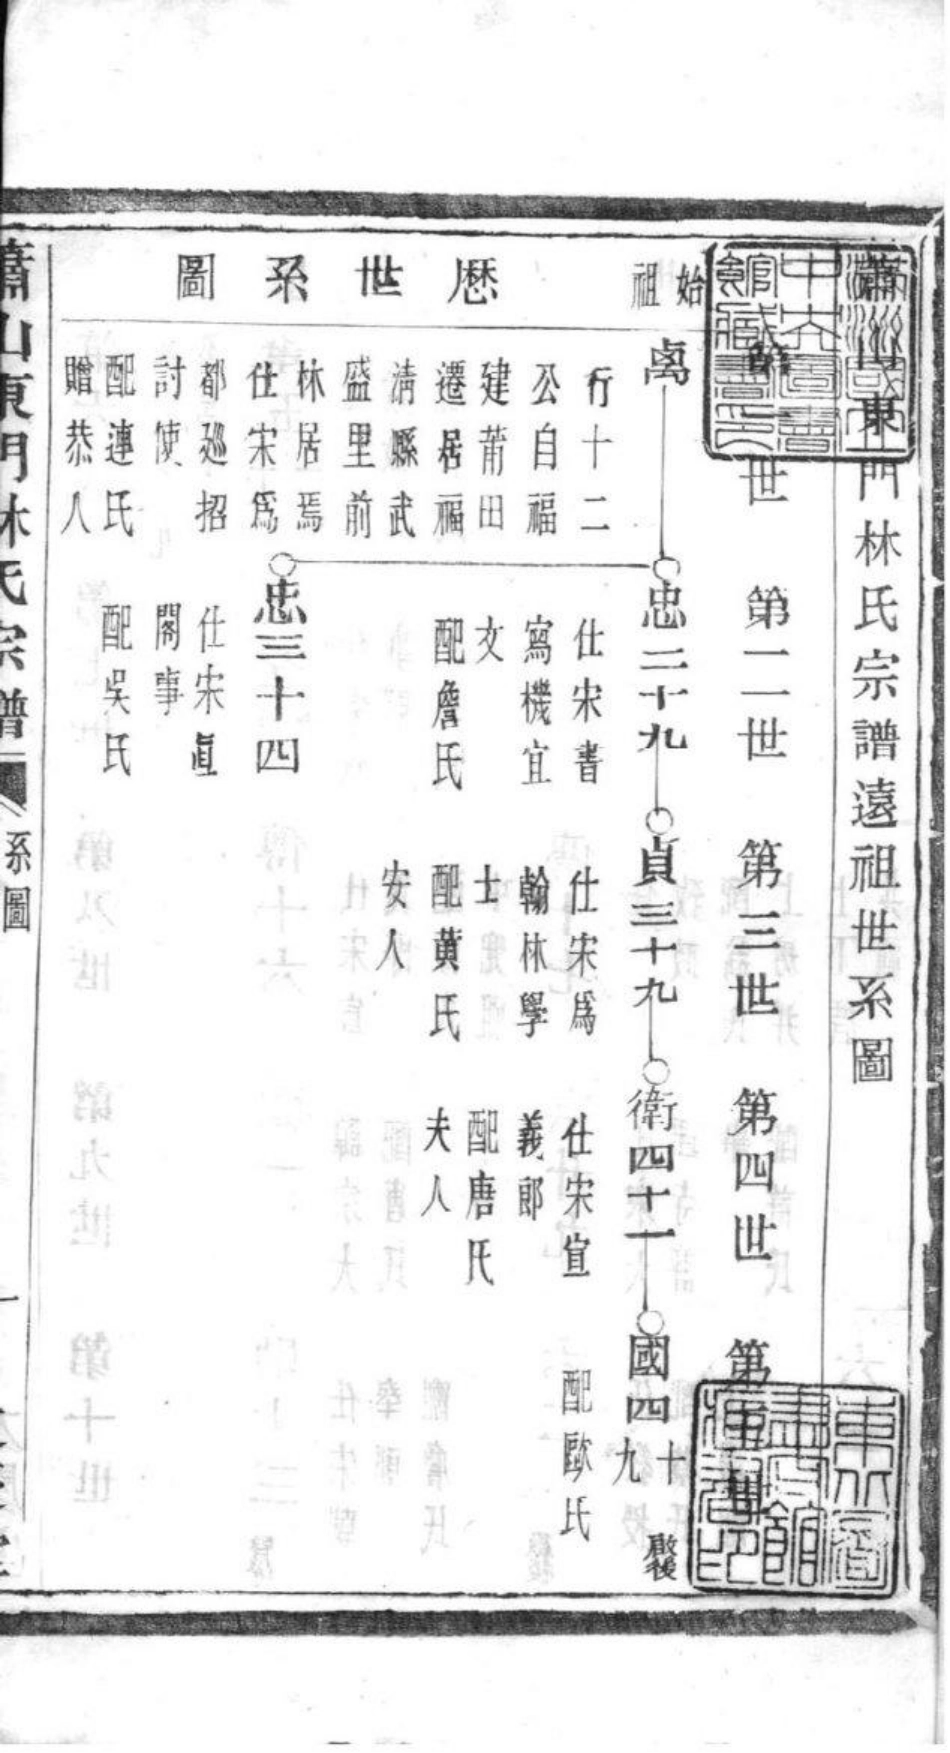 蕭山東門林氏宗譜遠祖世系圖
第一世
第二世
第三世
第四世
第五世
始祖
歷世系圖
卨
行十二
公自福
建莆田
遷居福
淸縣武
盛里前
林居焉
仕宋爲
都廵招
討使
配連氏
贈恭人
忠二十九
仕宋書
寫機宜
文
配詹氏
忠三十四
仕宋直
閣事
配吳氏
貞三十九
仕宋爲
翰林學
士
配黃氏
安人
衛四十一
仕宋宣
義郎
配唐氏
夫人
國四十九
啟後
配歐氏
蕭山東門林氏宗譜
系圖
一